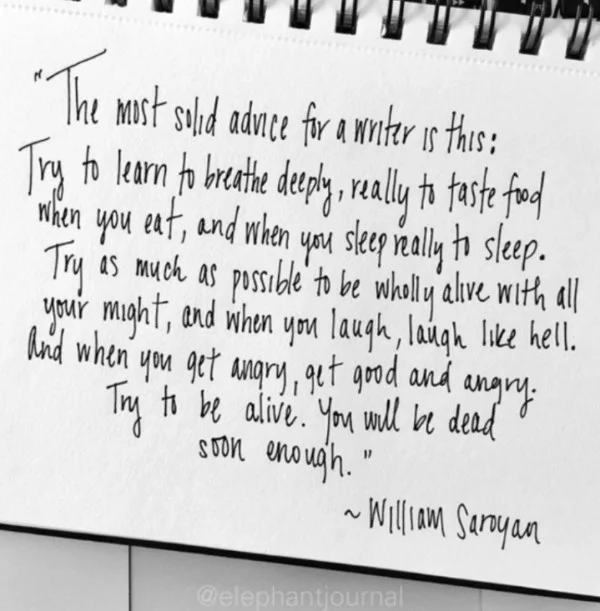 "The most solid advice for a writer is this:
Try to learn to breathe deeply, really to taste food
when you eat, and when you sleep really to sleep.
Try as much as possible to be wholly alive with all
your might, and when you laugh, laugh like hell.
And when you get angry, get good and angry.
Try to be alive. You will be dead
soon enough."
~ William Saroyan
@elephantjournal